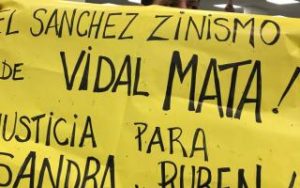 EL SANCHEZ ZINISMO
DE VIDAL MATA!
JUSTICIA PARA
SANDRA Y RUBEN!